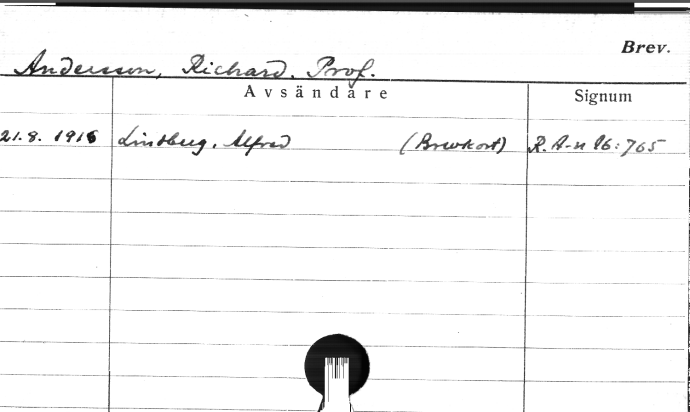 Brev.
Andersson, Richard. Prof.
Avsändare Signum
21.8. 1916 Lindberg, Alfred (Brevkort) R. A-n Pb: 765